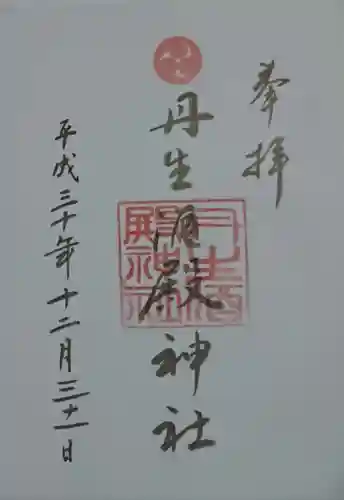 奉拝
丹生酒殿神社
平成三十年十二月三十一日
丹生酒殿神社